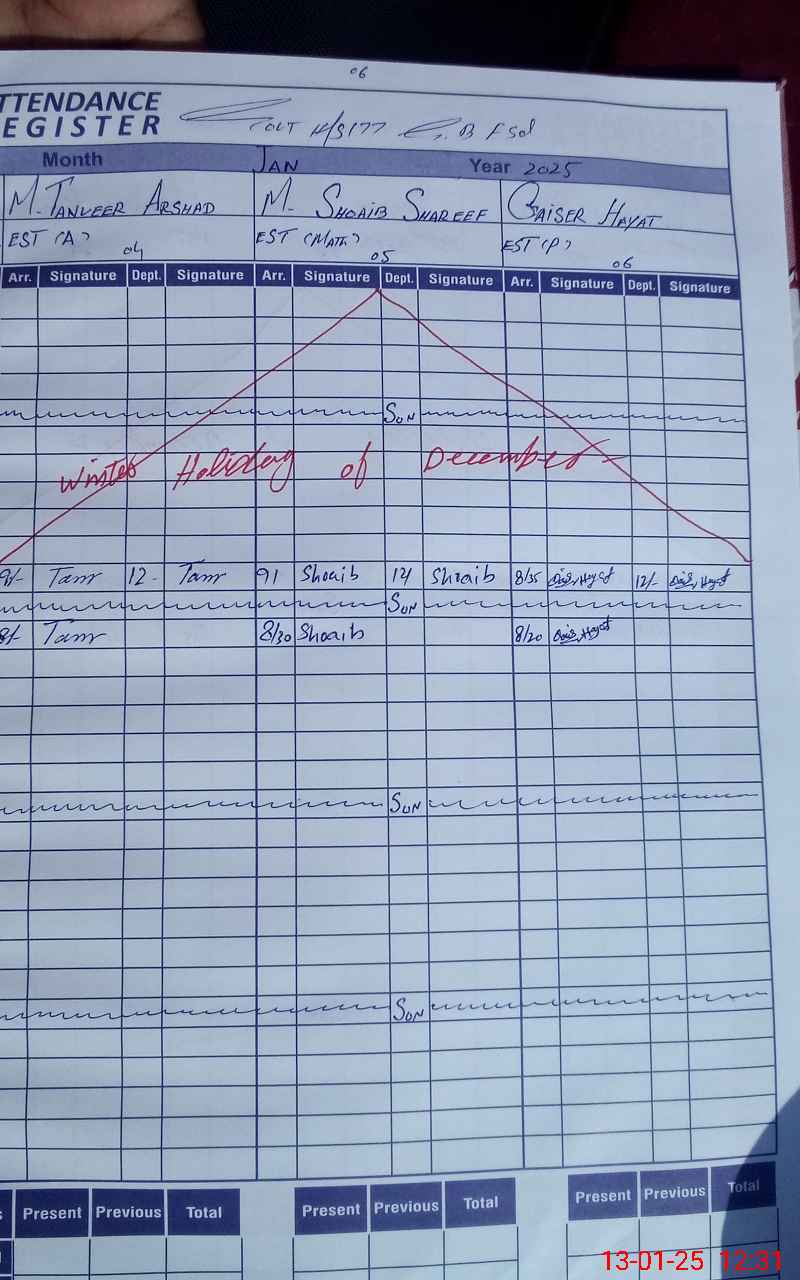 06
TTENDANCE
EGISTER
Month JAN Year 2025
M. TANVEER ARSHAD M. SHOAIB SHAREEF QAISER HAYAT
EST (A) 04 EST (MATH) 05 EST (P) 06
Arr. Signature Dept. Signature Arr. Signature Dept. Signature Arr. Signature Dept. Signature
SUN
Winter Holiday of December
9/- Tanr 12- Tanr 91 Shoaib 12/ Shoaib 8/35 12/-
SUN
8/- Tanr 8/30 Shoaib 8/20
SUN
SUN
s Present Previous Total Present Previous Total Present Previous Total
13-01-25 12:31